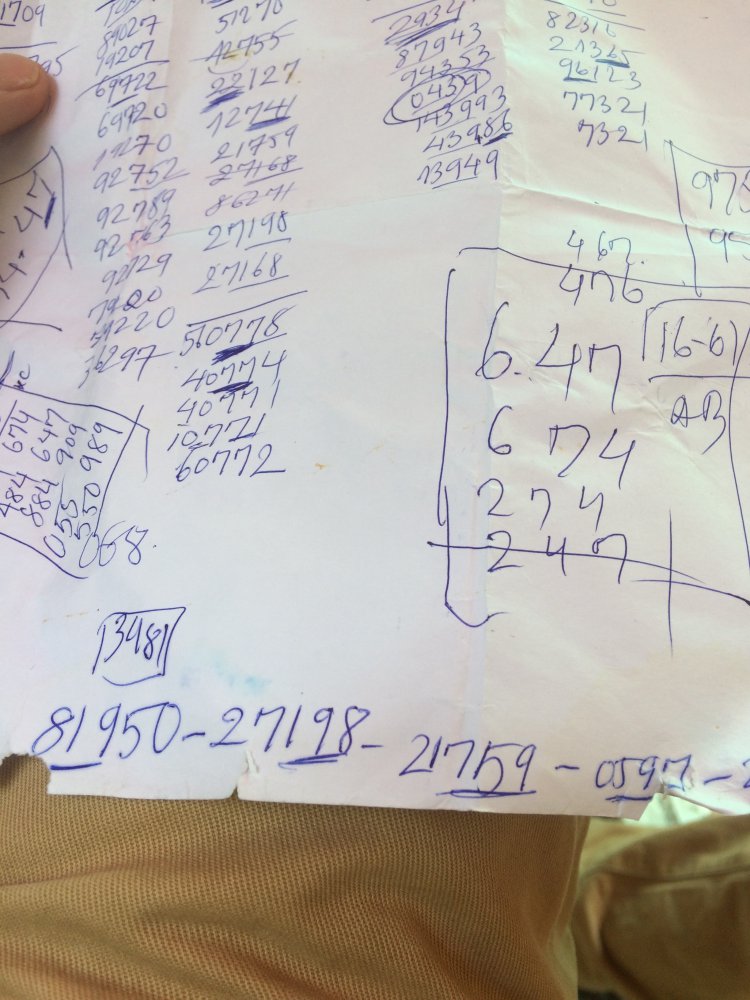 1709
89027
19207
69722
69920
19270
92752
92789
92763
92129
7920
79220
36297
51270
42755
22127
12741
21759
27168
86271
27198
27168
560778
40774
40771
10771
60772
2934
87943
94353
0439
143993
43986
13949
82316
21365
96123
77321
7321
975
467.
476
6.47
674
274
247
16-6
AB
674
647
909
989
484
884
055
550
068.
13481
81950-27198-21759-0597-